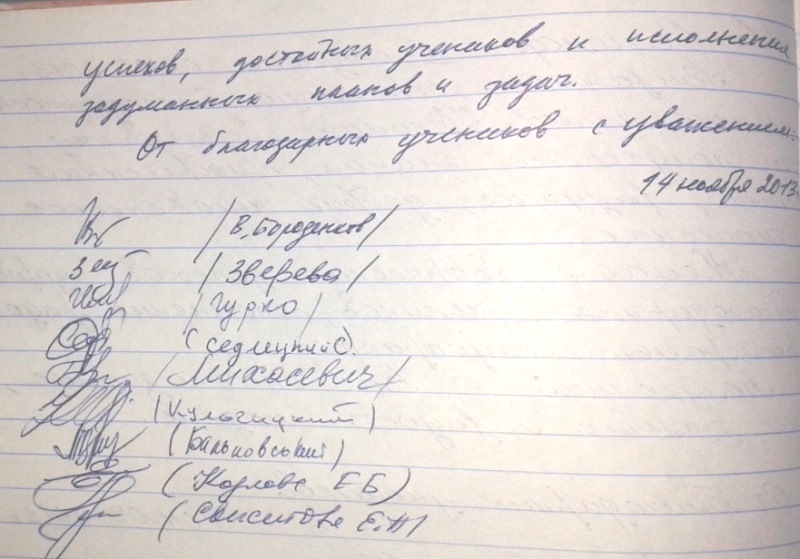 успехов, достойных учеников и исполнения
задуманных планов и задач.
От благодарных учеников с уважением:
14 ноября 2013
/В. Бороденков/
/Зверева/
/Гурко/
(Седлецкий С).
/Михасевич/
(Кулагицкий)
(Бальковський)
(Козлова Е Б)